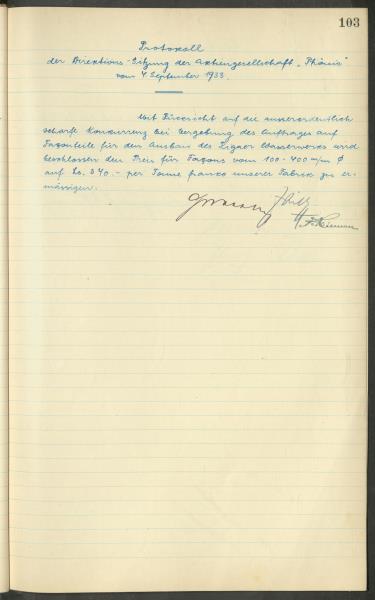 103
Protokoll
der Direktions-Sitzung der Aktiengesellschaft „Phönix“
vom 4. September 1933.
Mit Rücksicht auf die ausserordentlich
scharfe Konkurrenz bei Vergebung des Auftrages auf
Façonteile für den Ausbau des Rigaer Wasserwerks wird
beschlossen den Preis für Façons vom 100-400 m/m Ø
auf Ls. 340.- per Tonne franko unserer Fabrik zu er-
mässigen.